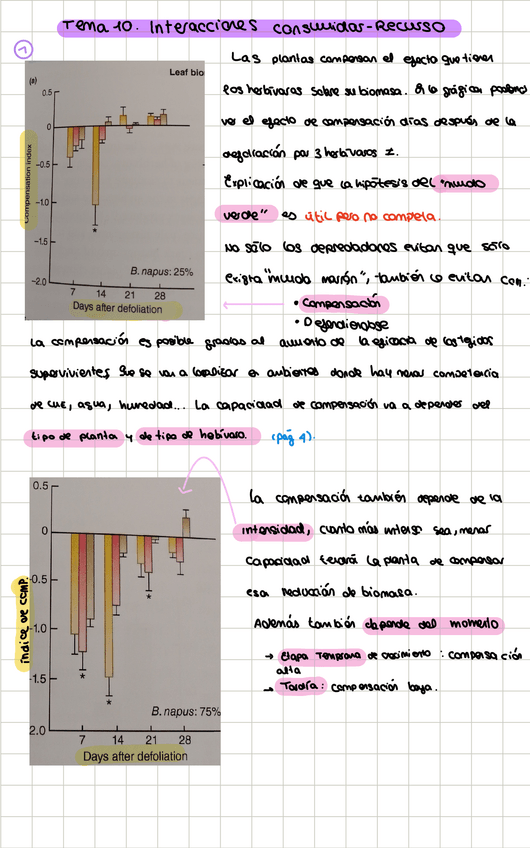 Tema 10. Interacciones consumidor-Recurso
1
Las plantas compensan el efecto que tienen
los herbívoros sobre su biomasa. En la gráfica podemos
ver el efecto de compensación días después de la
defoliación por 3 herbívoros ≠.
Explicación de que la hipótesis del "mundo
verde" es útil pero no completa.
No sólo los depredadores evitan que sólo
exista "mundo marrón", también lo evitan con:
• Compensación
• Defendiendose
(a)
Leaf bio
Compensation index
0.5
0
-0.5
-1.0
-1.5
-2.0
B. napus: 25%
7 14 21 28
Days after defoliation
La compensación es posible gracias al aumento de la eficacia de los tejidos
supervivientes que se van a localizar en ambientes donde hay menor competencia
de luz, agua, humedad... La capacidad de compensación va a depender del
tipo de planta y de tipo de hebívoro. (pág 4).
índice de comp.
0.5
0
-0.5
-1.0
-1.5
2.0
B. napus: 75%
7 14 21 28
Days after defoliation
La compensación también depende de la
intensidad, cuanto más intenso sea, menor
capacidad tendrá la planta de compensar
esa reducción de biomasa.
Además también depende del momento
→ Etapa Temprana de crecimiento: compensación
alta
→ Tardía: compensación baja.